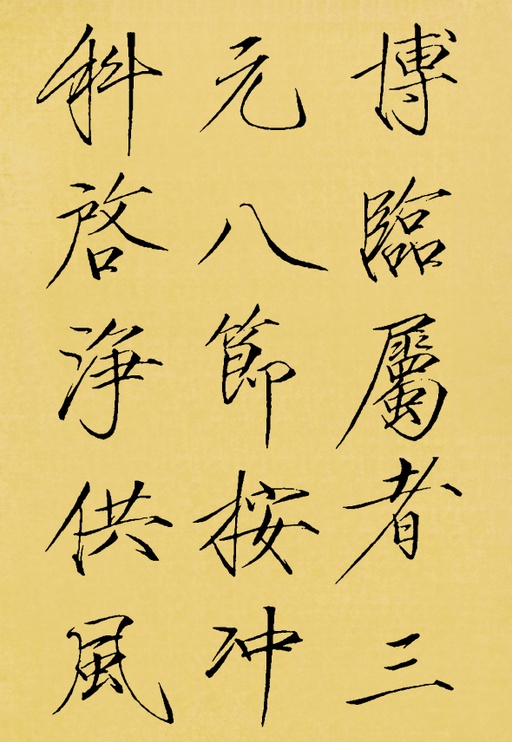 博臨屬者三
元八節按冲
科啓净供風